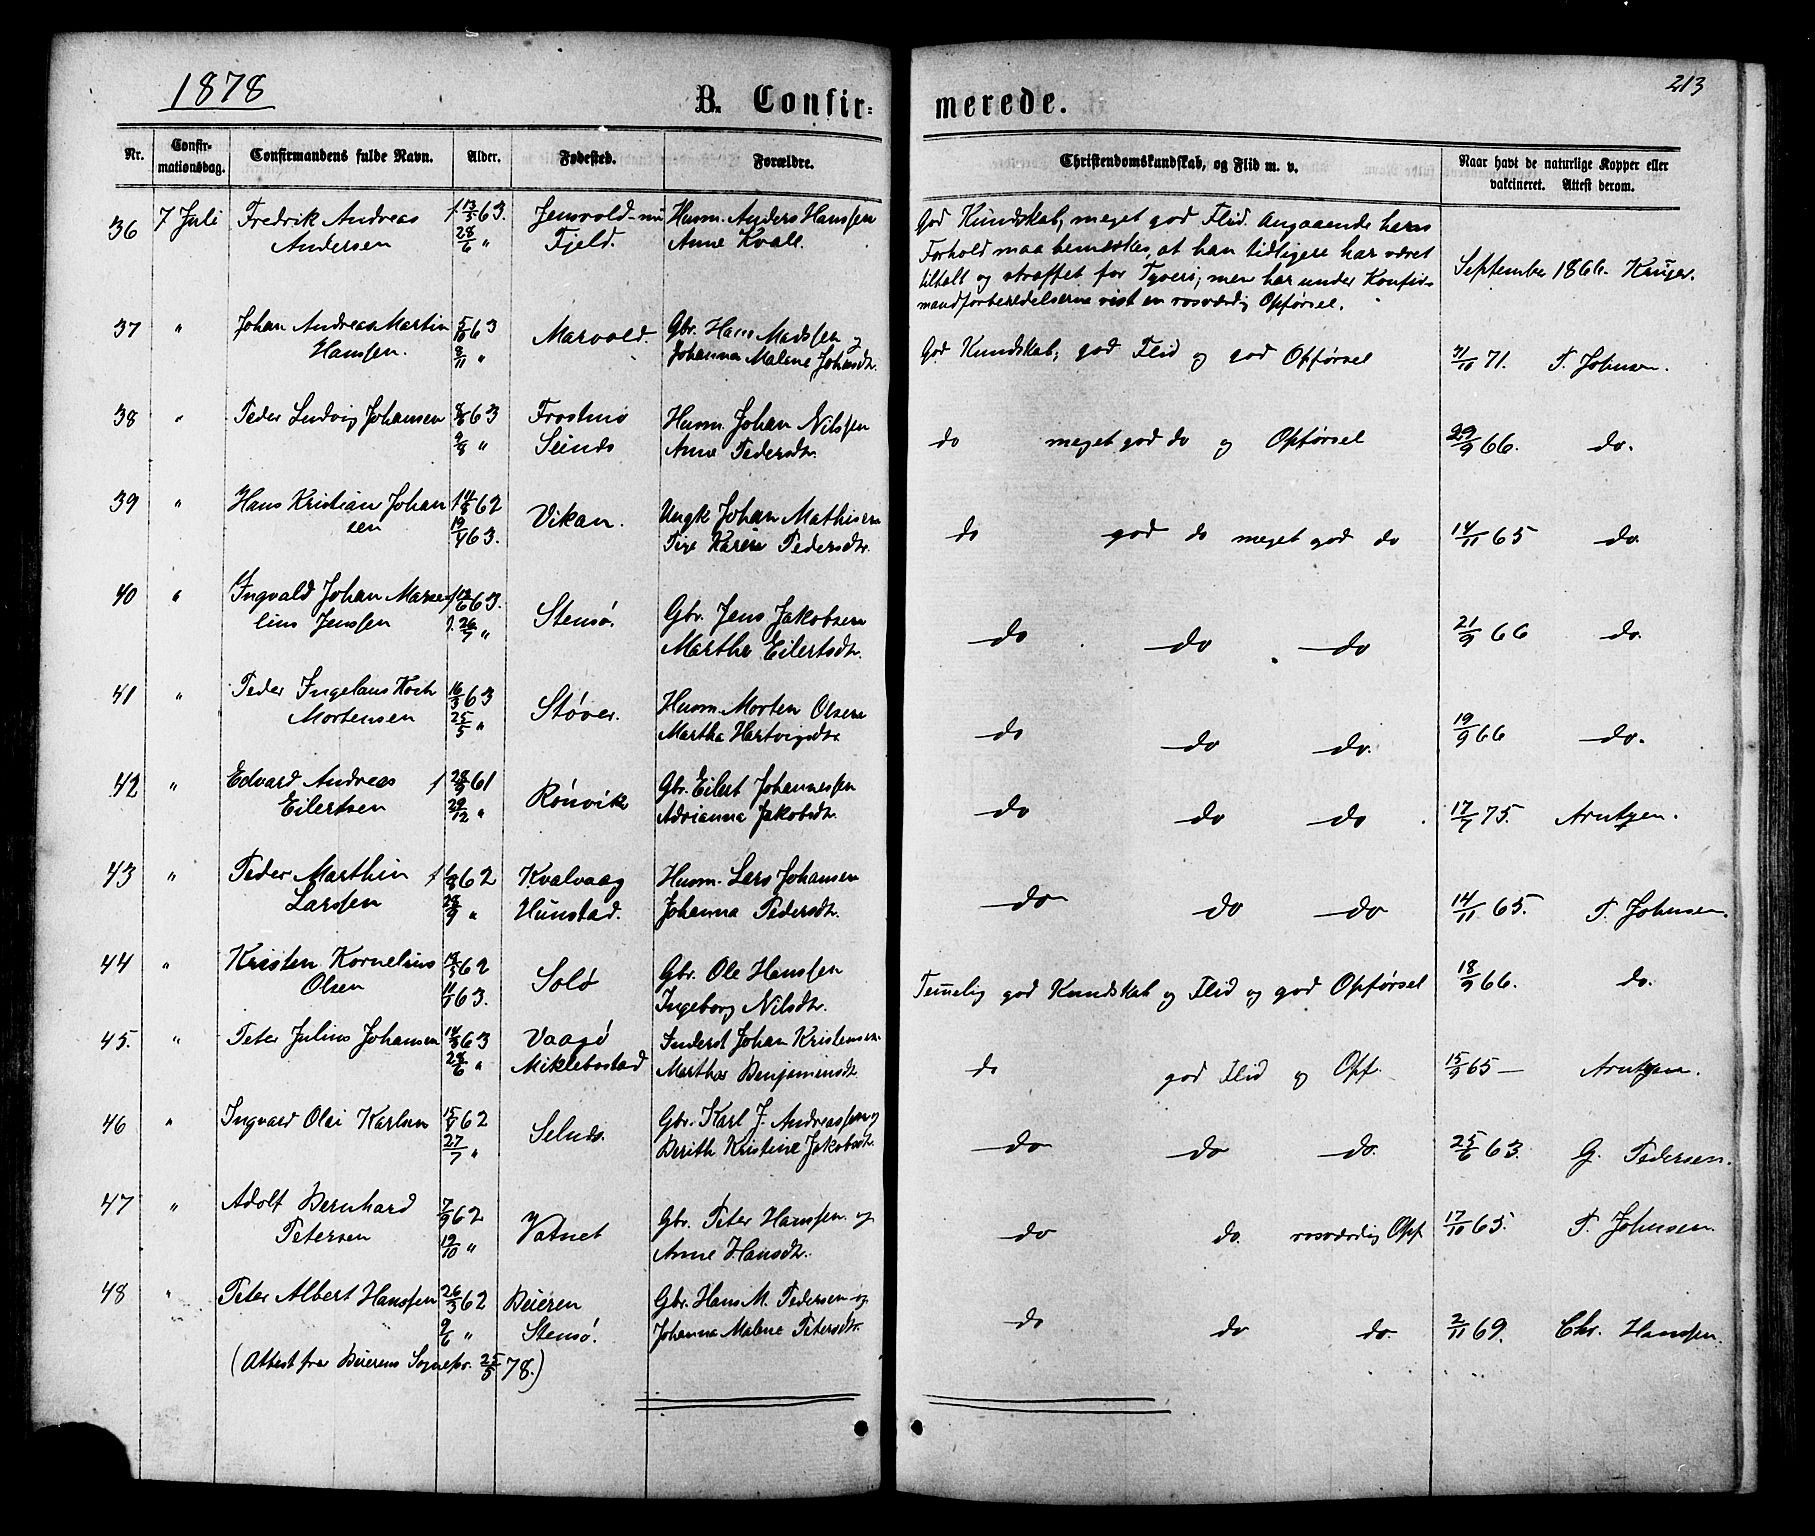 1878
213
B. Confir=
merede.
Nr.
Confir-
mationsdag.
Confirmandens fulde Navn.
Alder.
Fødested.
Forældre.
Christendomskundskab, og Flid m. v.
Naar havt de naturlige Kopper eller
vakcineret. Attest derom.
36 7 Juli Fredrik Andreas 13/5 63. Jensvold - nu Husm. Anders Hanssen
Andersen 28/6 " Fjeld. Anne Kvale.
God Kundskab, meget god Flid. Angaaende hans
Forhold maa bemærkes, at han tidligere har været
tiltalt og straffet for Tyveri; men har under Konfir-
mandforberedelserne vist en rosværdig Opførsel.
September 1866. Krüger.
37 " Johan Andreas Martin 5/10 63 Marvold. Gbr. Hans Madssen og
Hanssen. 8/11 " Johanna Malene Johansdtr.
God Kundskab, god Flid og god Opførsel 31/10 71. P. Johnsen.
38 " Peder Ludvig Johansen 8/8 63 Frostmo Husm. Johan Nilssen
9/9 " Seines Anne Pedersdtr.
do meget god do og Opførsel 29/9 66. do.
39 " Hans Kristian Johan 14/8 62 Vikan. Ungk Johan Mathisen
sen 19/4 63. Pige Karen Pedersdtr.
do god do meget god do 14/11 65 do.
40 " Ingvald Johan Marse 12/6 63. Stensø. Gbr. Jens Jakobsen
lius Jenssen 26/7 " Martha Eilertsdtr.
do do do 21/9 66 do.
41 " Peder Ingelaus Koch 16/3 63 Støver. Husm. Morten Olsen
Mortensen 25/5 " Martha Hartvigsdtr.
do do do. 19/9 66 do.
42 " Edvard Andreas 28/9 61 Rönvik Gbr. Eilert Johannessen
Eilertsen 29/12 " Adrianna Jakobsdtr.
do do do 17/7 75. Arntzen.
43 " Peder Marthin 1/8 62 Kvalvaag Husm. Lars Johansen
Larssen 28/9 " Hunstad. Johanna Pedersdtr.
do do do 14/11 65. P. Johnsen.
44 " Kristen Kornelius 62 Solø Gbr. Ole Hanssen
Olsen 63. Ingeborg Nilsdtr.
Temelig god Kundskab og Flid og god Opførsel 18/9 66. do.
45. " Peter Julius Johansen 14/3 63 Vaagø Inderst Johan Kristensen
28/6 " Miklebostad Martha Benjaminsdtr
do god Flid og Opf. 15/9 65 — Arntzen.
46 " Ingvard Olai Karlsen 15/4 62 Selnæs. Gbr. Karl J. Andreassen og
27/7 " Berith Kristine Jakobsdtr.
do do do. 25/6 63. G. Pedersen.
47 " Adolf Bernhard 7/9 62 Vatnet Gbr. Peter Hanssen og
Petersen 19/10 " Anne Hansdtr.
do do. rosværdig Opf 17/10 65. P. Johnsen.
48 " Peter Albert Hanssen 26/3 62 Beieren Gbr. Hans M. Pedersen og
9/6 " Stensø. Johanna Malene Petersdtr.
do do do. 2/11 69. Chr. Hanssen.
(Attest fra Beierens Sognepr. 25/5 78.)